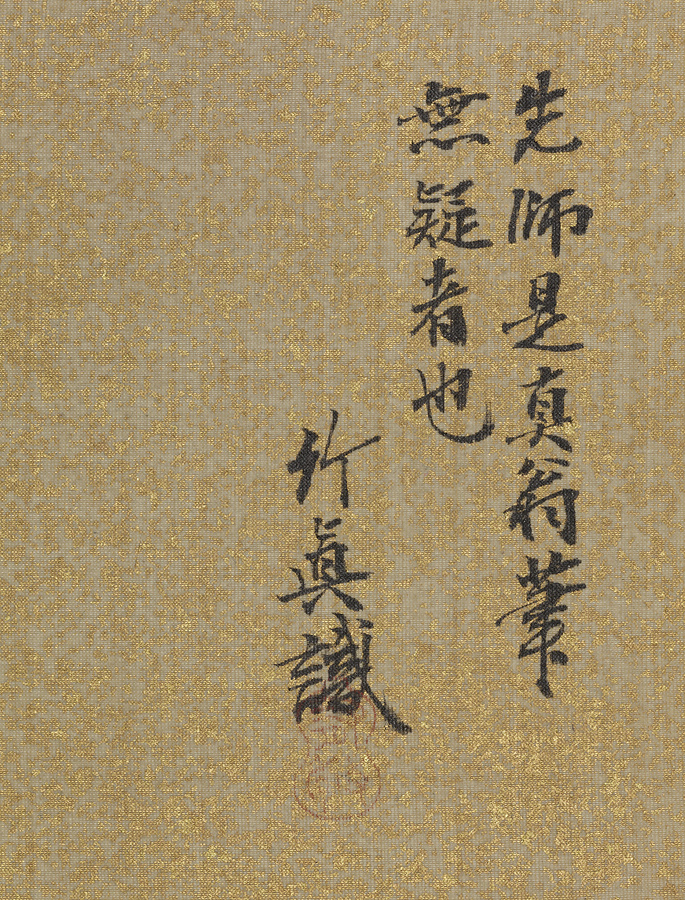 先師是真翁筆
無疑者也
竹眞識